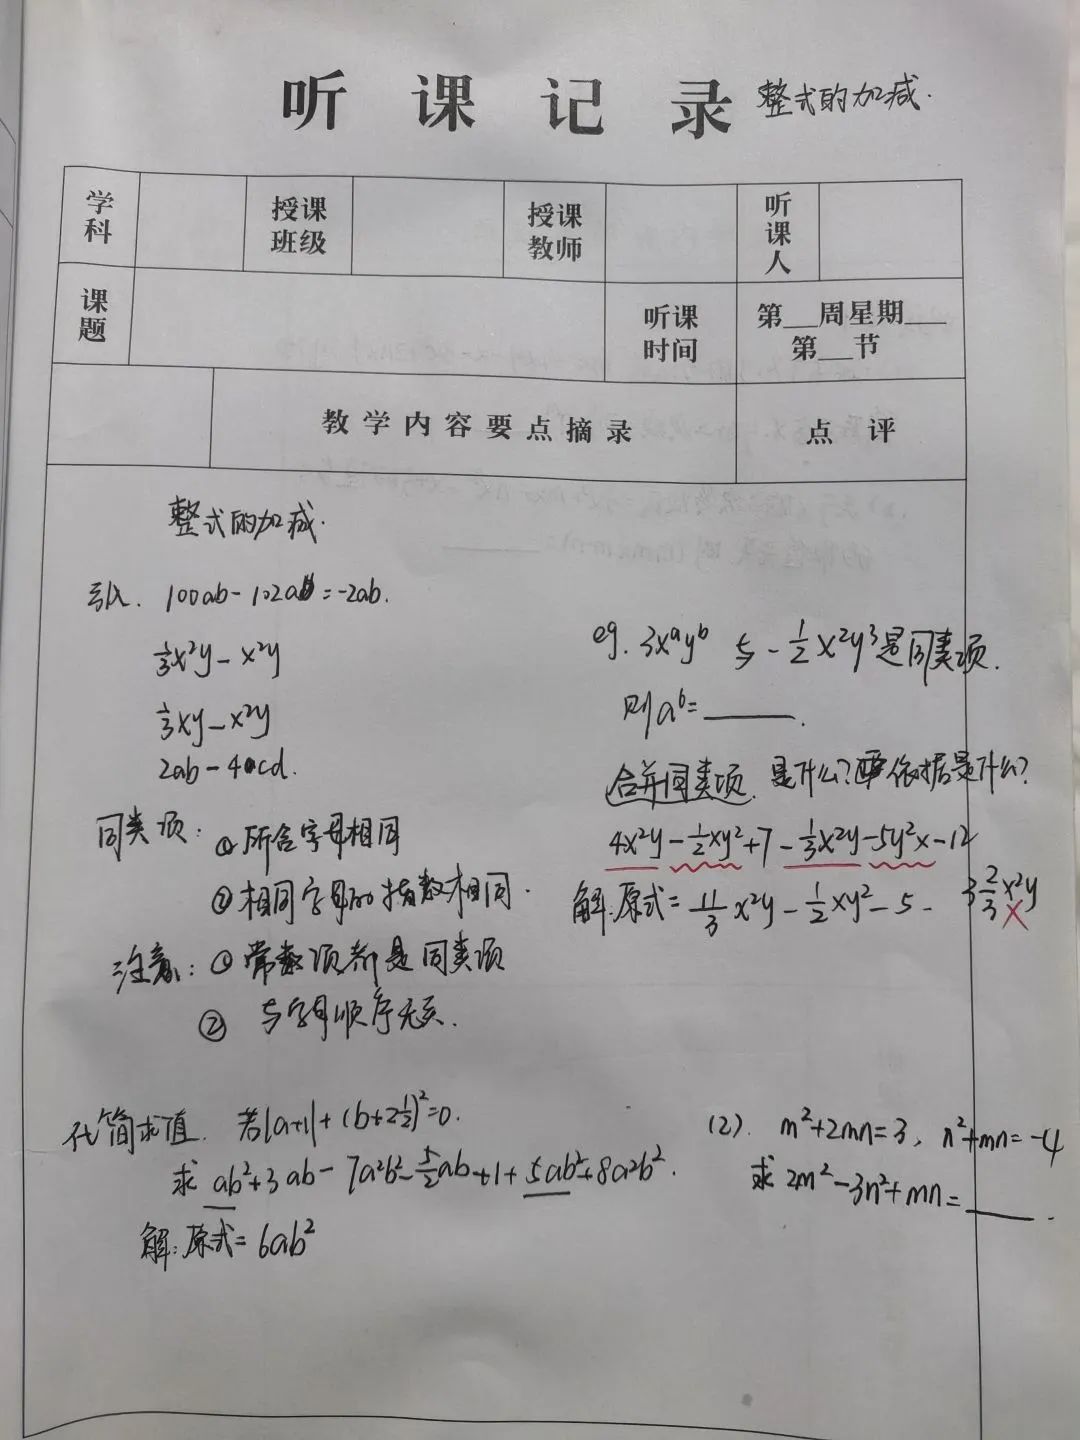 听课记录 整式的加减.
学科 授课班级 授课教师 听课人
课题 听课时间 第__周星期__ 第__节
教学内容要点摘录 点评
整式的加减.
引入. 100ab-102ab=-2ab.
⅓x²y-x²y
⅓xy-x²y
2ab-4cd.
同类项: ①所含字母相同
②相同字母的指数相同.
注意: ①常数项都是同类项
② 与字母顺序无关.
eg. 3xᵃyᵇ 与 -½x²y³是同类项.
则aᵇ=____.
合并同类项. 是什么? 依据是什么?
4x²y-½xy²+7-⅓x²y-5y²x-12
解:原式=11/3x²y-½xy²-5-
3⅔x²y
×
化简求值. 若|a+1|+(b+2½)²=0.
求 ab²+3ab-7a²b²-5/2ab+1+5ab²+8a²b².
解:原式=6ab²
(2). m²+2mn=3, n²+mn=-4
求 2m²-3n²+mn=____.